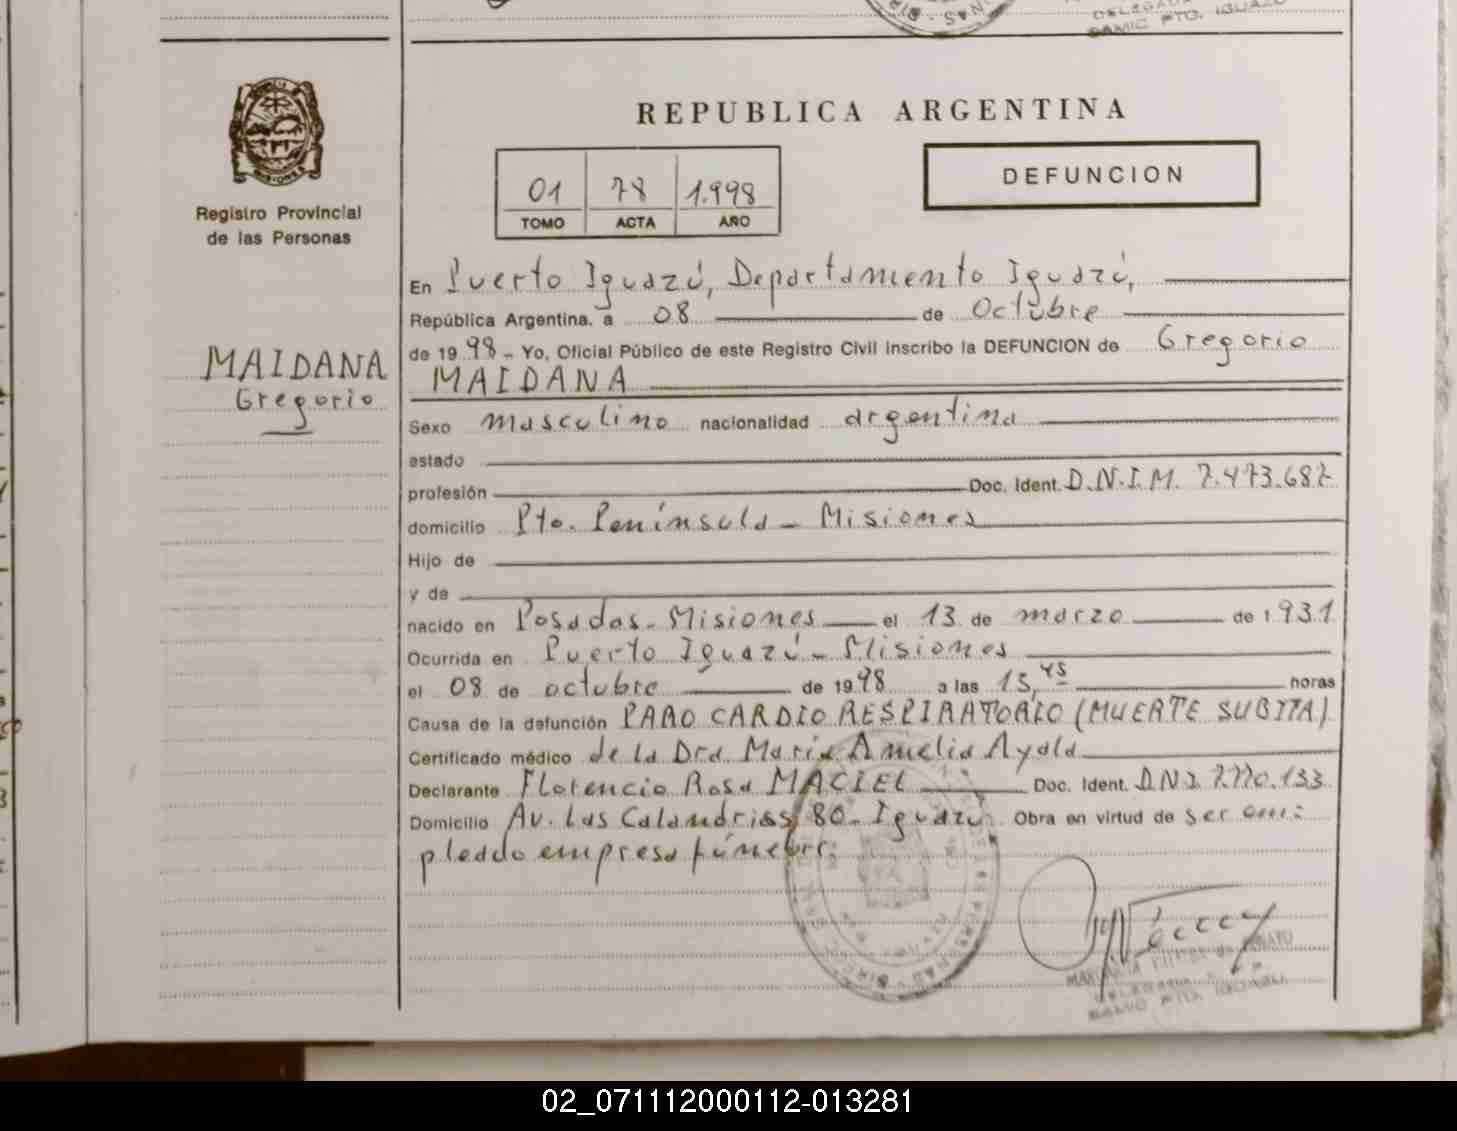 DELEGADA
SAMIC PTO. IGUAZU
REPUBLICA ARGENTINA
DEFUNCION
01 78 1.998
TOMO ACTA AÑO
Registro Provincial
de las Personas
MAIDANA
Gregorio
En Puerto Iguazú, Departamento Iguazú,
República Argentina, a 08 de Octubre
de 1998 - Yo, Oficial Público de este Registro Civil inscribo la DEFUNCION de Gregorio
MAIDANA
Sexo masculino nacionalidad argentina
estado
profesión Doc. Ident. D.N.I.M. 7.473.687
domicilio Pto. Península - Misiones
Hijo de
y de
nacido en Posadas - Misiones el 13 de marzo de 1931
Ocurrida en Puerto Iguazú - Misiones
el 08 de octubre de 1998 a las 15,45 horas
Causa de la defunción PARO CARDIO RESPIRATORIO (MUERTE SUBITA)
Certificado médico de la Dra. María Amelia Ayala
Declarante Florencio Rosa MACIEL Doc. Ident. D.N.I. 7.770.133
Domicilio Av. Las Calandrias 80 - Iguazú Obra en virtud de ser em-
pleado empresa fúnebre
DELEGADA
SAMIC PTO. IGUAZU
02_071112000112-013281